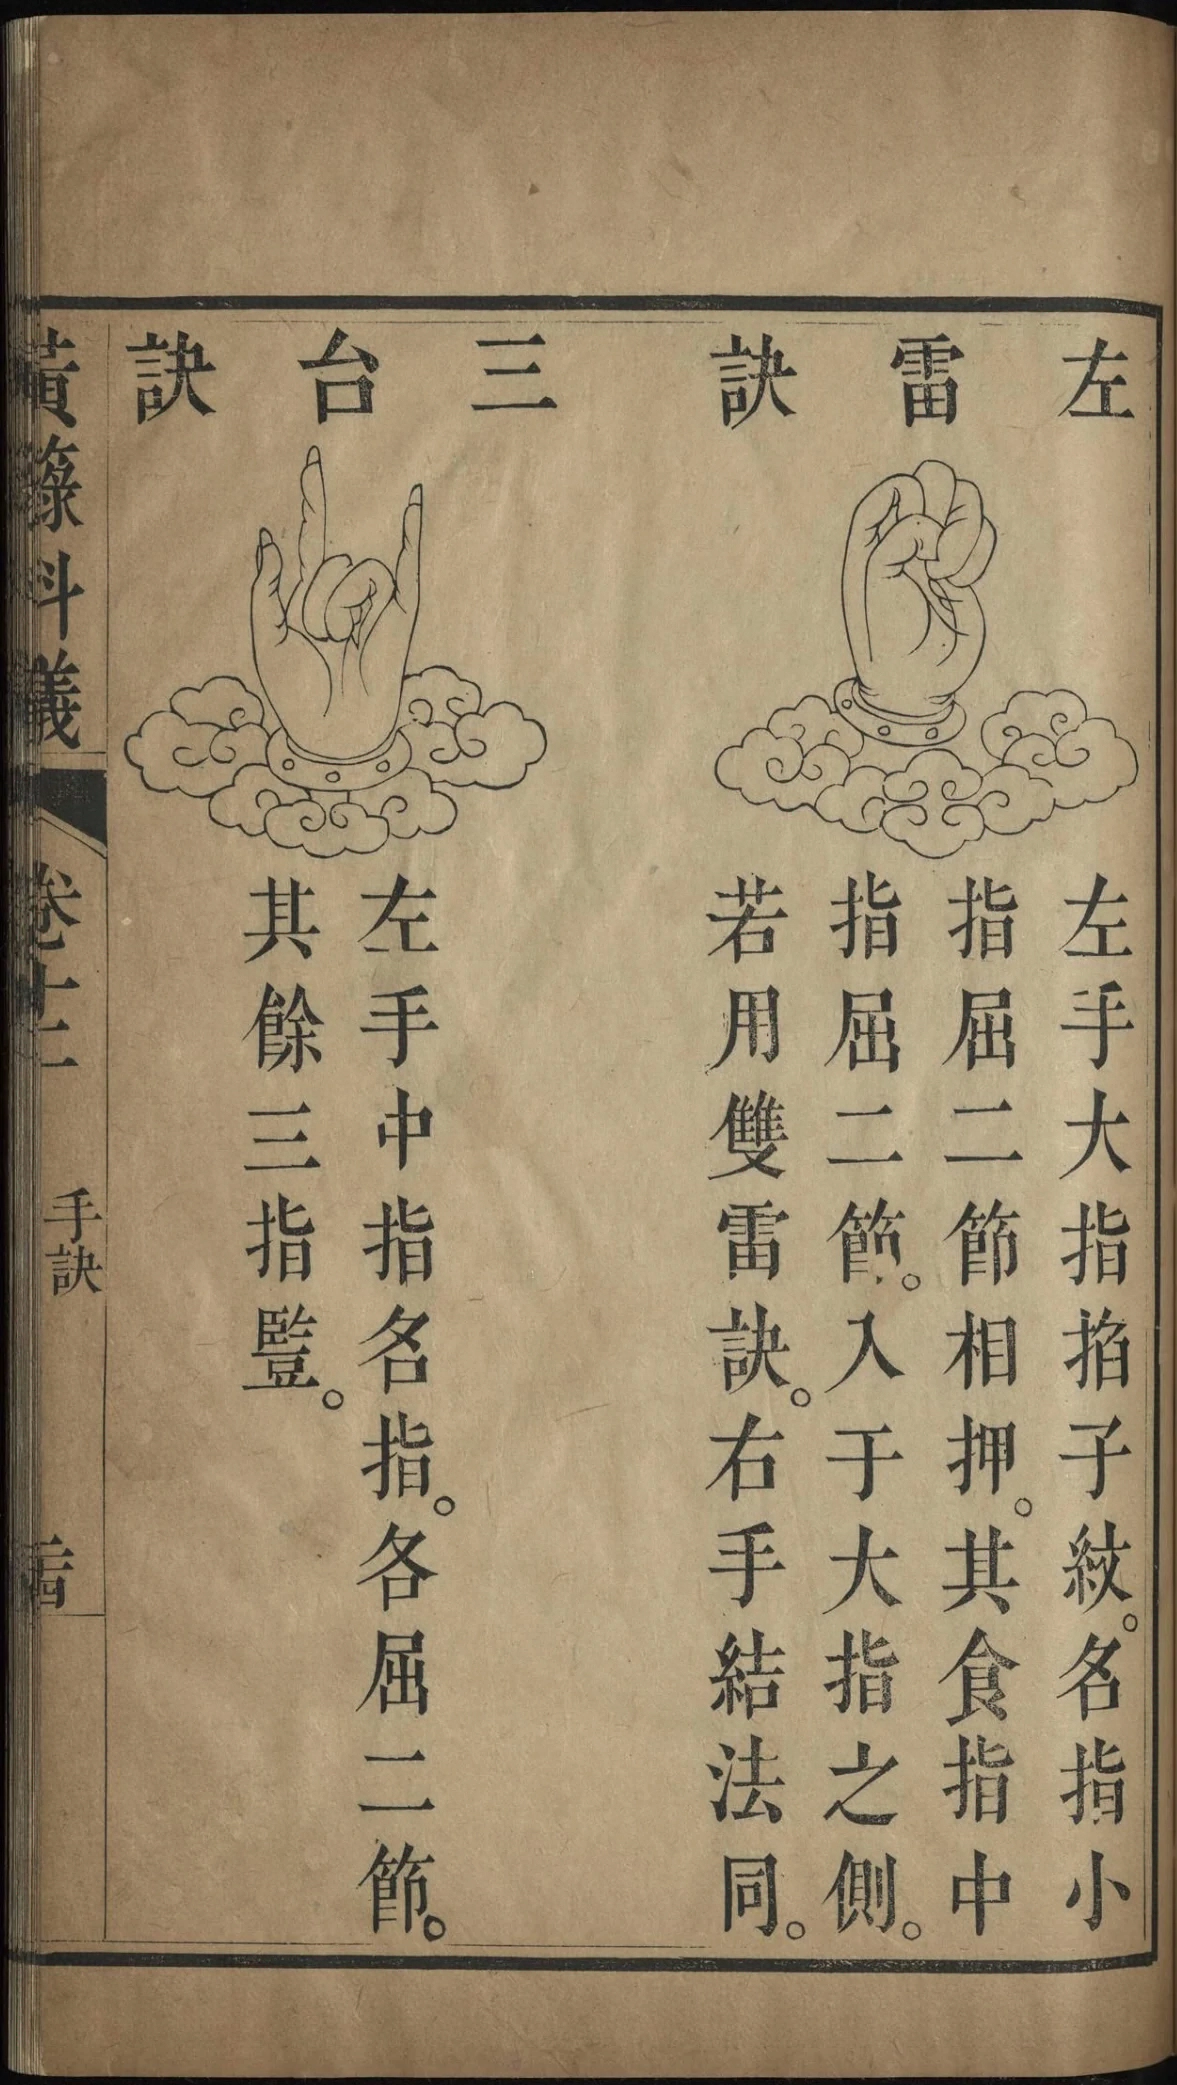 左雷訣
左手大指掐子紋。名指小
指屈二節相押。其食指中
指屈二節。入于大指之側。
若用雙雷訣。右手結法同。
三台訣
左手中指名指。各屈二節。
其餘三指豎。
黃籙科儀
卷十二
手訣